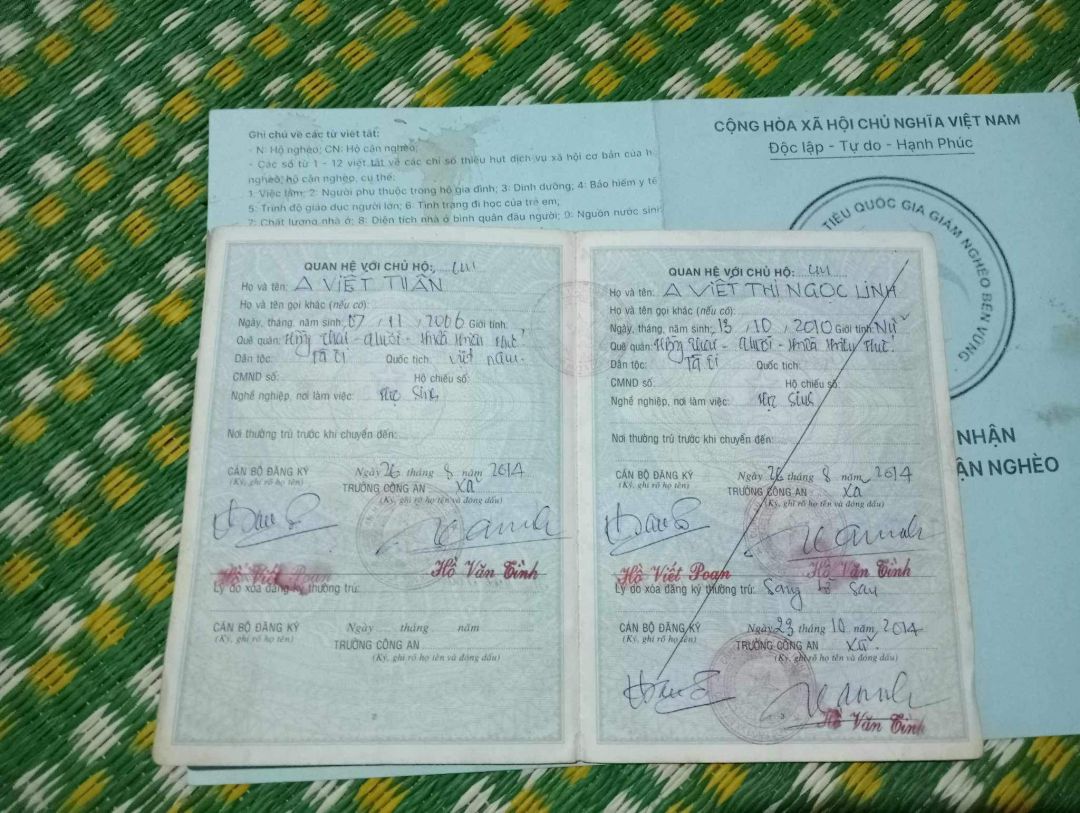 Ghi chú về các từ viết tắt:
- N: Hộ nghèo; CN: Hộ cận nghèo;
- Các số từ 1 - 12 viết tắt về các chỉ số thiếu hụt dịch vụ xã hội cơ bản của h
nghèo, hộ cận nghèo, cụ thể:
1: Việc làm; 2: Người phụ thuộc trong hộ gia đình; 3: Dinh dưỡng; 4: Bảo hiểm y tế
5: Trình độ giáo dục người lớn; 6: Tình trạng đi học của trẻ em;
7: Chất lượng nhà ở; 8: Diện tích nhà ở bình quân đầu người; 9: Nguồn nước sin
CỘNG HÒA XÃ HỘI CHỦ NGHĨA VIỆT NAM
Độc lập - Tự do - Hạnh Phúc
TIÊU QUỐC GIA GIẢM NGHÈO BỀN VỮNG
NHẬN
ẬN NGHÈO
QUAN HỆ VỚI CHỦ HỘ:
Họ và tên: A VIẾT TUẤN
Họ và tên gọi khác (nếu có):
Ngày, tháng, năm sinh: 07, 11, 2006 Giới tính:
Quê quán: Hồng Thái - A lưới -
Dân tộc: Tà ôi Quốc tịch: việt nam
CMND số: Hộ chiếu số:
Nghề nghiệp, nơi làm việc: Học sinh
Nơi thường trú trước khi chuyển đến:
Ngày 26 tháng 8 năm 2014
CÁN BỘ ĐĂNG KÝ
(Ký, ghi rõ họ tên)
TRƯỞNG CÔNG AN xã
(Ký, ghi rõ họ tên và đóng dấu)
Hồ Viết Poan
Hồ Văn Tình
Lý do xóa đăng ký thường trú:
Ngày tháng năm
CÁN BỘ ĐĂNG KÝ
(Ký, ghi rõ họ tên)
TRƯỞNG CÔNG AN
(Ký, ghi rõ họ tên và đóng dấu)
QUAN HỆ VỚI CHỦ HỘ:
Họ và tên: A VIẾT THỊ NGỌC LINH
Họ và tên gọi khác (nếu có):
Ngày, tháng, năm sinh: 13, 10, 2010 Giới tính: Nữ
Quê quán: Hồng Thái - A lưới -
Dân tộc: Tà ôi Quốc tịch:
CMND số: Hộ chiếu số:
Nghề nghiệp, nơi làm việc: Học sinh
Nơi thường trú trước khi chuyển đến:
Ngày 26 tháng 8 năm 2014
CÁN BỘ ĐĂNG KÝ
(Ký, ghi rõ họ tên)
TRƯỞNG CÔNG AN xã
(Ký, ghi rõ họ tên và đóng dấu)
Hồ Viết Poan
Hồ Văn Tình
Lý do xóa đăng ký thường trú: Sang sau
Ngày 23 tháng 10 năm 2014
CÁN BỘ ĐĂNG KÝ
(Ký, ghi rõ họ tên)
TRƯỞNG CÔNG AN xã
(Ký, ghi rõ họ tên và đóng dấu)
Hồ Văn Tình